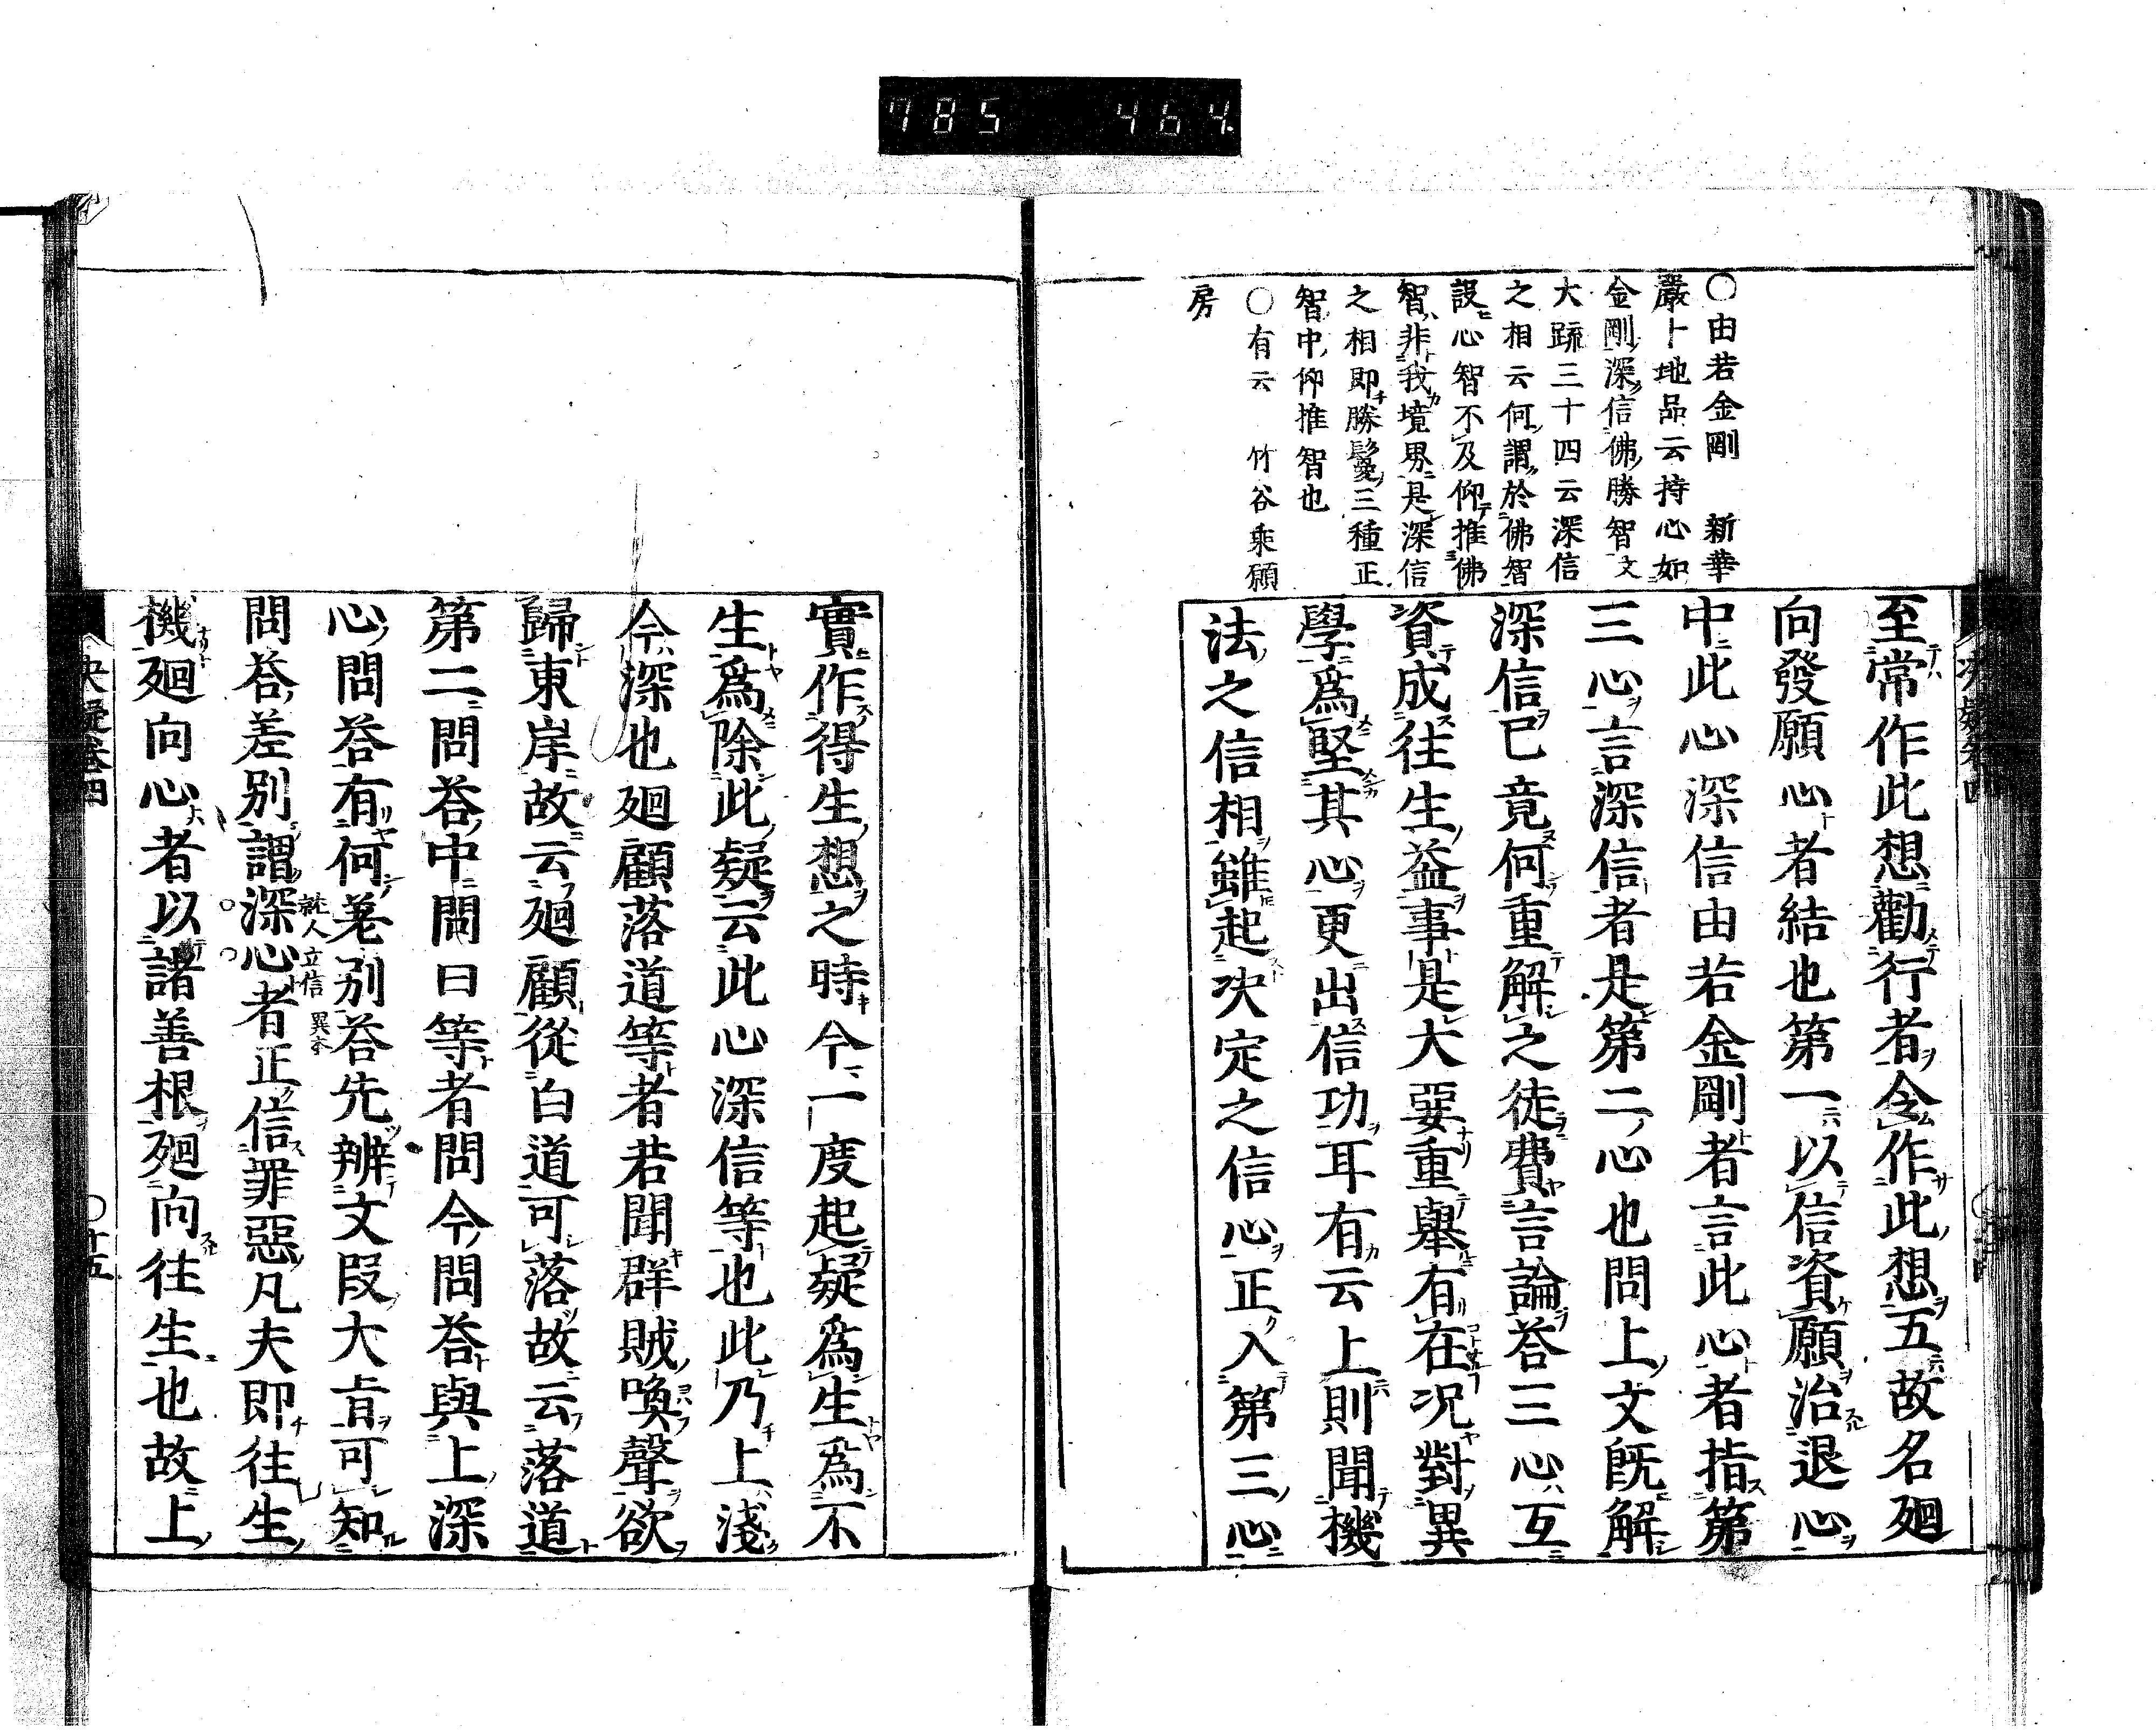 785 464
○由若金剛 新華
嚴十地品云持心如
金剛深信佛勝智文
大疏三十四云深信
之相云何謂於佛智
設心智不及仰推佛
智非我境界是深信
之相即勝鬘三種正
智中仰推智也
○有云 竹谷乘願
房
至常作此想勸行者令作此想五故名廻
向發願心者結也第一以信資願治退心
中此心深信由若金剛者言此心者指第
三心言深信者是第二心也問上文既解
深信已竟何重解之徒費言論答三心互
資成往生益事是大要重舉有在況對異
學爲堅其心更出信功耳有云上則聞機
法之信相雖起決定之信心正入第三心
實作得生想之時今一度起疑爲生爲不
生爲除此疑云此心深信等也此乃上淺
今深也廻顧落道等者若聞群賊喚聲欲
歸東岸故云廻顧從白道可落故云落道
第二問荅中問曰等者問今問荅與上深
心問荅有何差別荅先辨文段大旨可知
問荅差別謂深心者正信罪惡凡夫即往生
就人立信異本
機廻向心者以諸善根廻向往生也故上
決疑卷四
○十五